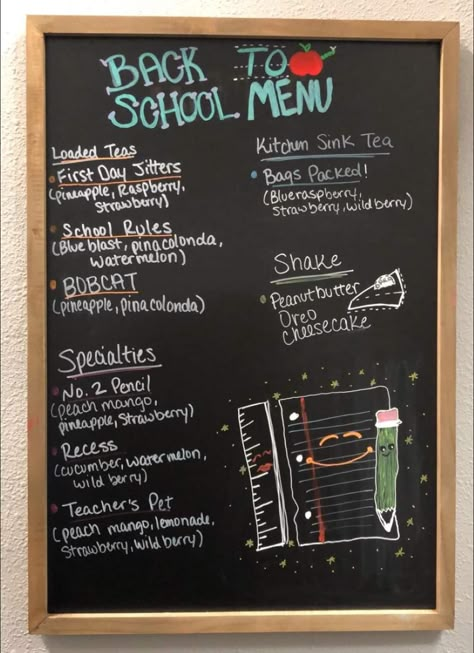 BACK TO
SCHOOL MENU
Loaded Teas
First Day Jitters
(pineapple, Raspberry,
strawberry)
School Rules
(Blue blast, pinacolonda,
watermelon)
BOBCAT
(pineapple, pinacolonda)
Specialties
No. 2 Pencil
(peach mango,
pineapple, strawberry)
Recess
(cucumber, watermelon,
wild berry)
Teacher's Pet
(peach mango, lemonade,
strawberry, wild berry)
Kitchen Sink Tea
Bags Packed!
(Blueraspberry,
strawberry, wild berry)
Shake
Peanutbutter
Oreo
cheesecake